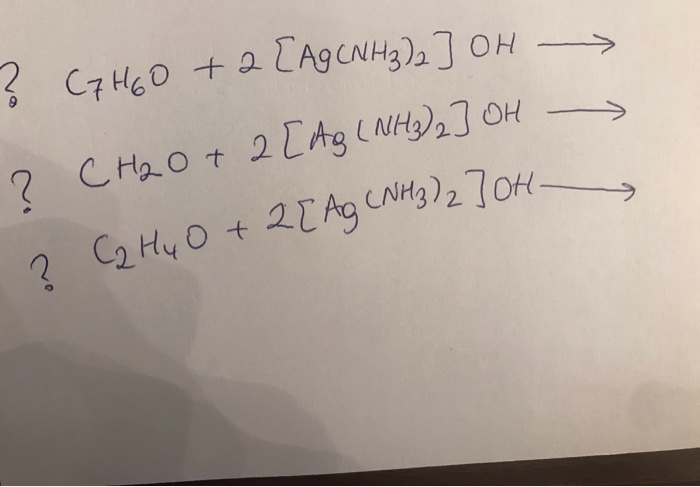 ? C7H6O + 2 [Ag(NH3)2] OH →
? CH2O + 2 [Ag(NH3)2] OH →
? C2H4O + 2[Ag(NH3)2] OH →